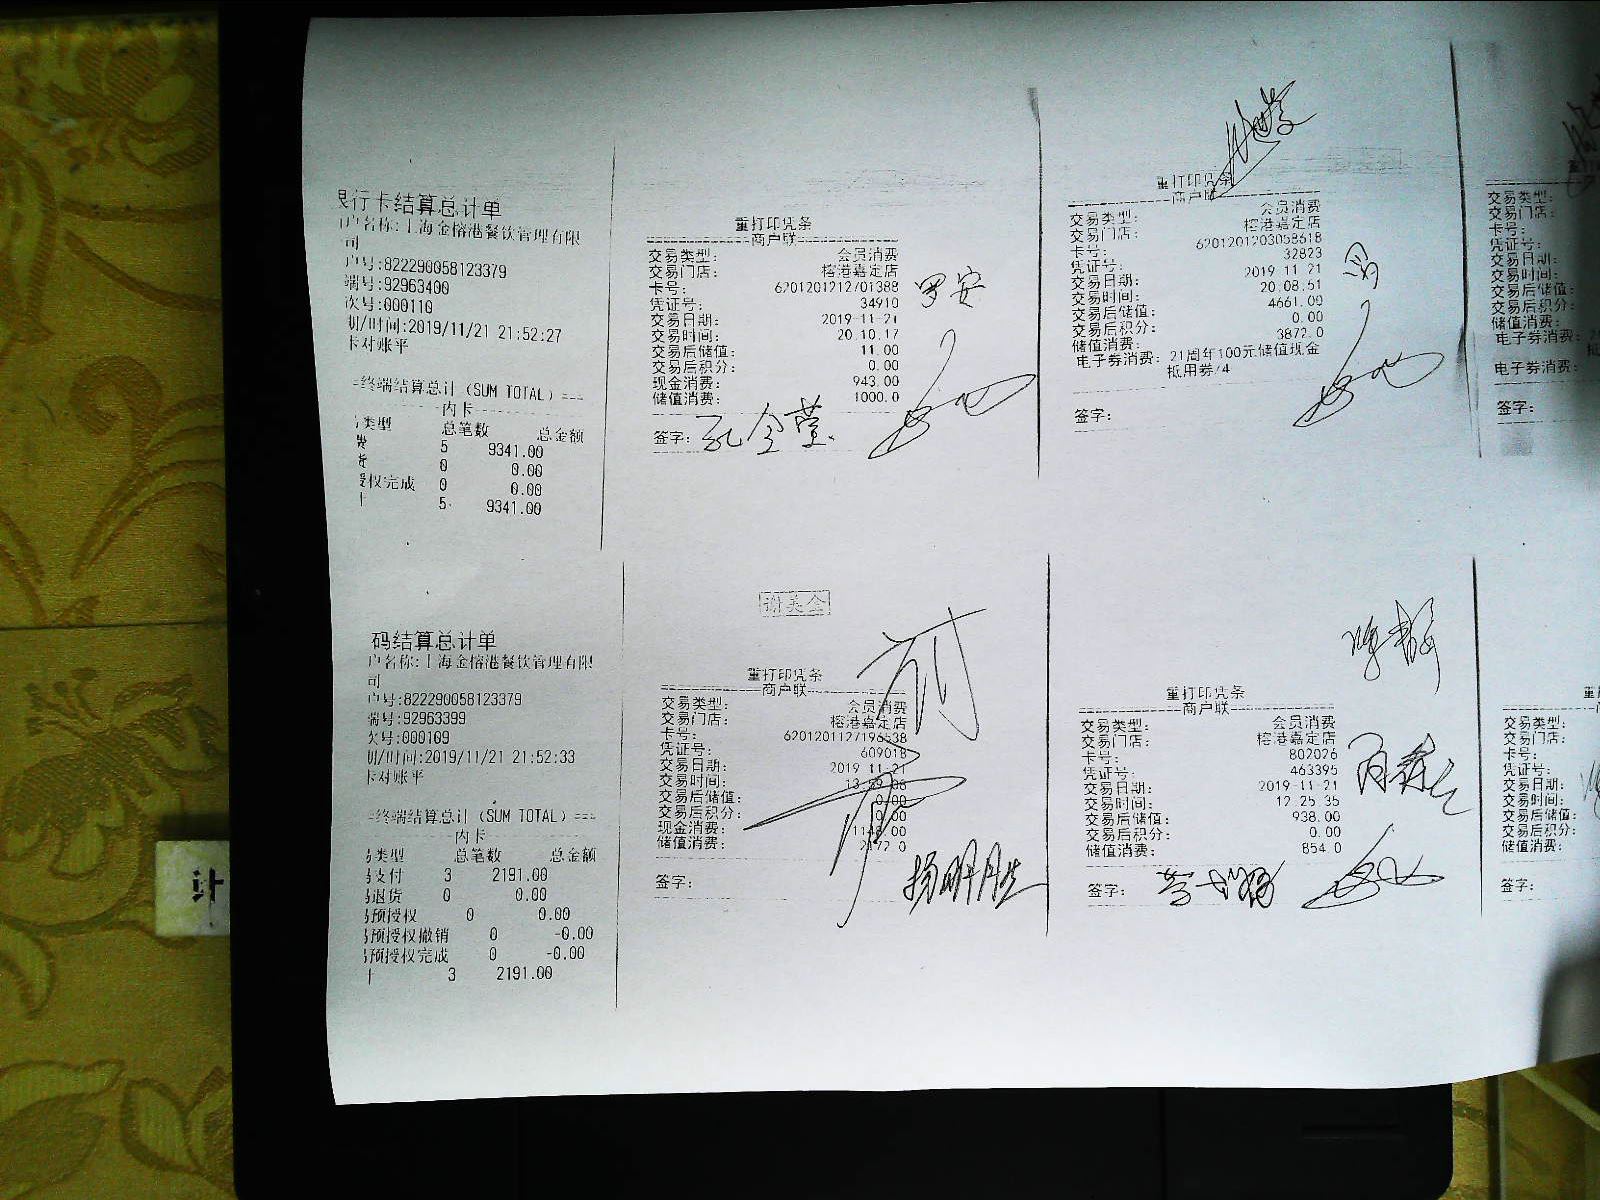 行卡结算总计单
户名称:上海金榕港餐饮管理有限
司
户号:822290058123379
端号:92963400
次号:000110
期/时间:2019/11/21 21:52:27
卡对账平
=终端结算总计(SUM TOTAL)===
内卡
类型 总笔数 总金额
5 9341.00
0 0.00
授权完成 0 0.00
5 9341.00
重打印凭条
商户联
交易类型: 会员消费
交易门店: 榕港嘉定店
卡号: 6201201212701388
凭证号: 34910
交易日期: 2019-11-21
交易时间: 20.10.17
交易后储值: 11.00
交易后积分: 0.00
现金消费: 943.00
储值消费: 1000.0
签字:
重打印凭条
商户联
交易类型: 会员消费
交易门店: 榕港嘉定店
卡号: 6201201203058618
凭证号: 32823
交易日期: 2019-11-21
交易时间: 20.08.51
交易后储值: 4661.00
交易后积分: 0.00
储值消费: 3872.0
电子券消费: 21周年100元储值现金
抵用券/4
签字:
交易类型:
交易门店:
卡号:
凭证号:
交易日期:
交易时间:
交易后储值:
交易后积分:
储值消费:
电子券消费:
电子券消费:
签字:
码结算总计单
户名称:上海金榕港餐饮管理有限
司
户号:822290058123379
端号:92963399
次号:000109
期/时间:2019/11/21 21:52:33
卡对账平
=终端结算总计(SUM TOTAL)===
内卡
类型 总笔数 总金额
支付 3 2191.00
退货 0 0.00
预授权 0 0.00
预授权撤销 0 -0.00
预授权完成 0 -0.00
3 2191.00
谢美金
重打印凭条
商户联
交易类型: 会员消费
交易门店: 榕港嘉定店
卡号: 6201201127196538
凭证号: 609018
交易日期: 2019-11-21
交易时间:
交易后储值: 0.00
交易后积分: 0.00
现金消费:
储值消费:
签字:
重打印凭条
商户联
交易类型: 会员消费
交易门店: 榕港嘉定店
卡号: 802026
凭证号: 463395
交易日期: 2019-11-21
交易时间: 12.25.35
交易后储值: 938.00
交易后积分: 0.00
储值消费: 854.0
签字:
交易类型:
交易门店:
卡号:
凭证号:
交易日期:
交易时间:
交易后储值:
交易后积分:
储值消费:
签字:
计